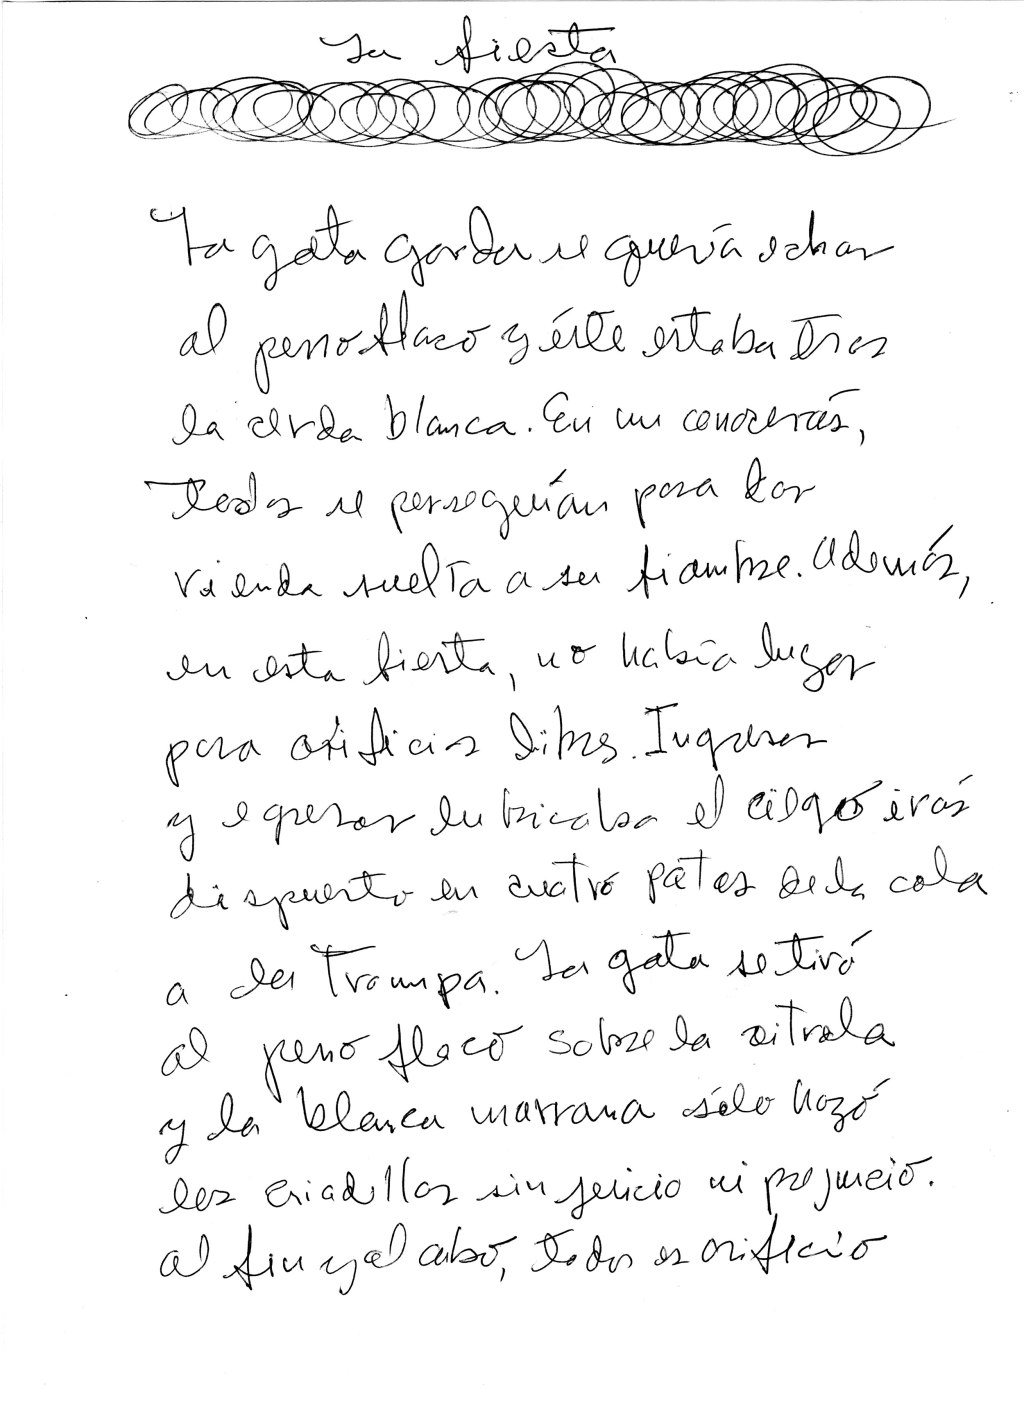 La fiesta
La gata gorda se quería echar
al perro flaco y éste estaba tras
la cerda blanca. En un conocerás,
todos se perseguían para dar
rienda suelta a su fiambre. Además,
en esta fiesta, no había lugar
para orificios libres. Ingresar
y egresar lubricaba el ciego irás
dispuesto en cuatro patas de la cola
a la trompa. La gata se tiró
al perro flaco sobre la
y la blanca marrana sólo hozó
las criadillas sin juicio ni prejuicio.
al fin y al cabo, todo es orificio